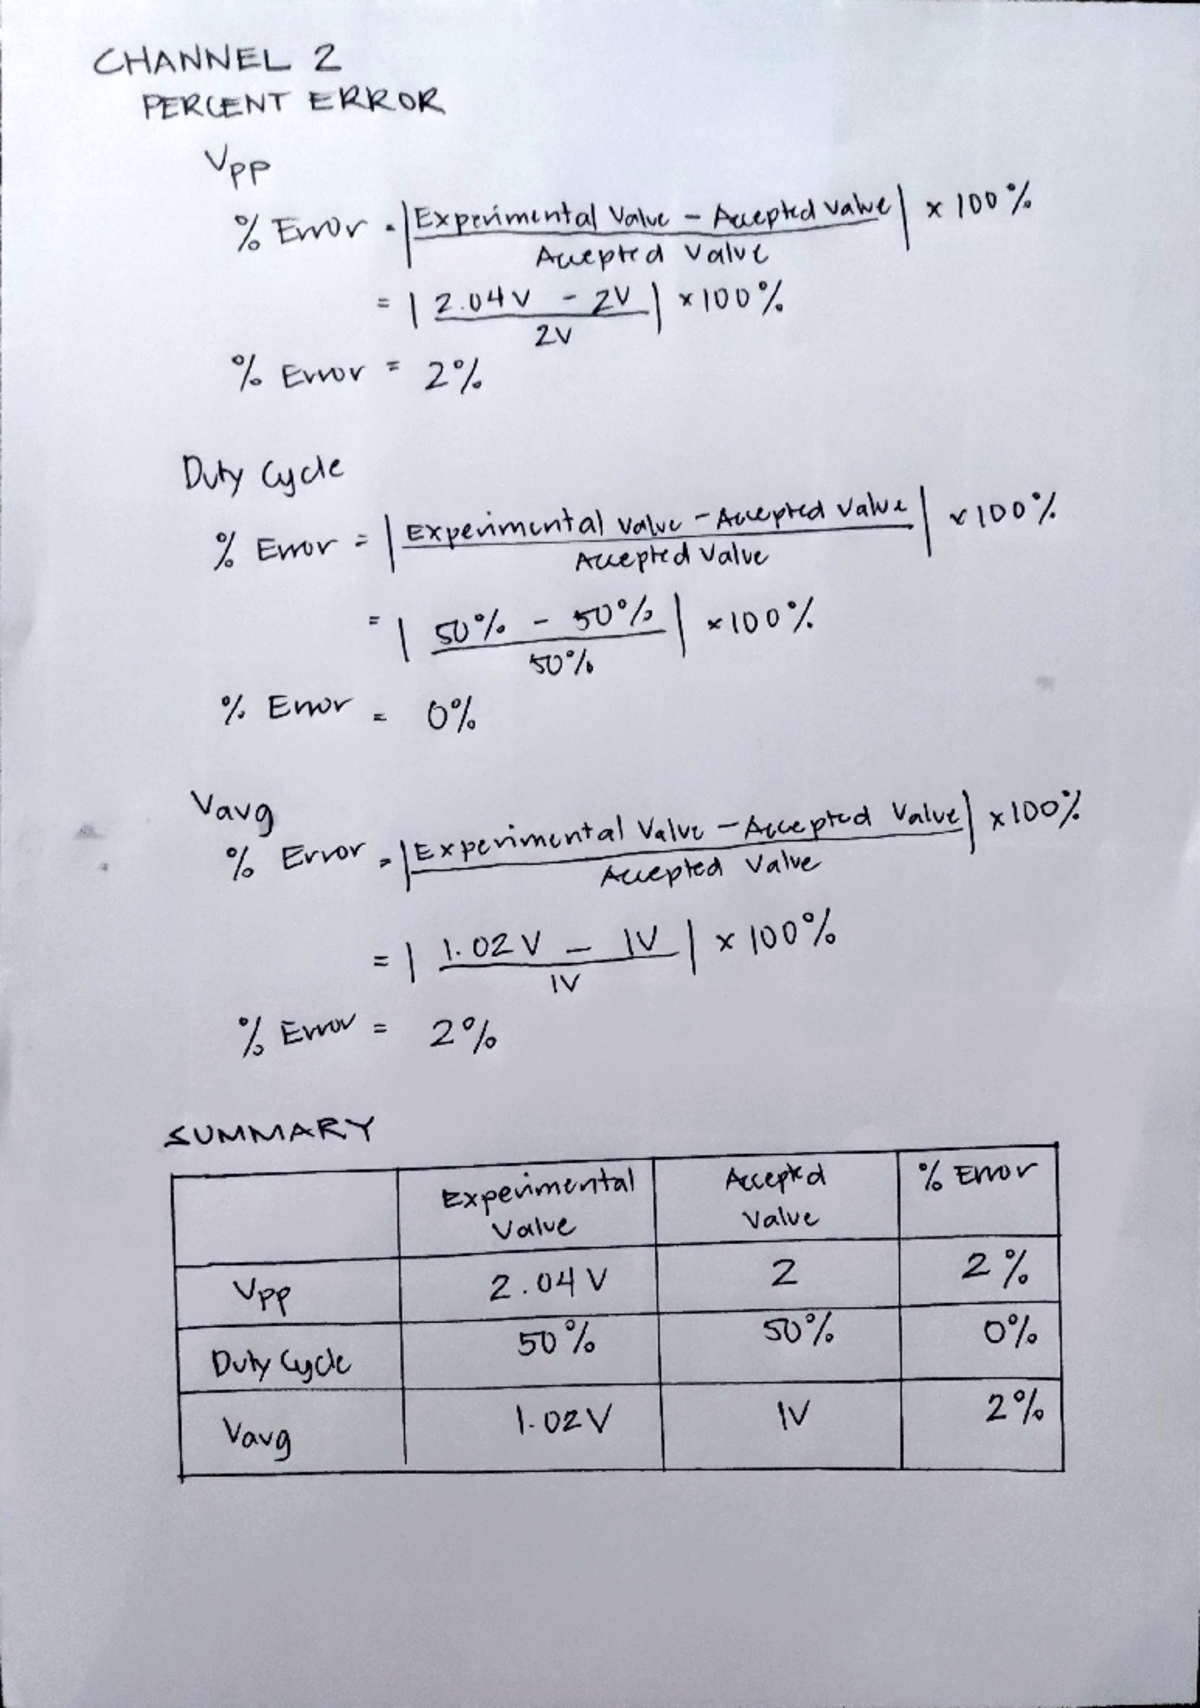 CHANNEL 2
PERCENT ERROR
Vpp
% Error = |Experimental Value - Accepted Value| x 100%
Accepted Value
= | 2.04V - 2V | x 100%
2V
% Error = 2%
Duty Cycle
% Error = | Experimental Value - Accepted Value | x 100%
Accepted Value
= | 50% - 50% | x 100%
50%
% Error = 0%
Vavg
% Error = |Experimental Value - Accepted Value| x 100%
Accepted Value
= | 1.02V - 1V | x 100%
1V
% Error = 2%
SUMMARY
Experimental Value Accepted Value % Error
Vpp 2.04V 2 2%
Duty Cycle 50% 50% 0%
Vavg 1.02V 1V 2%